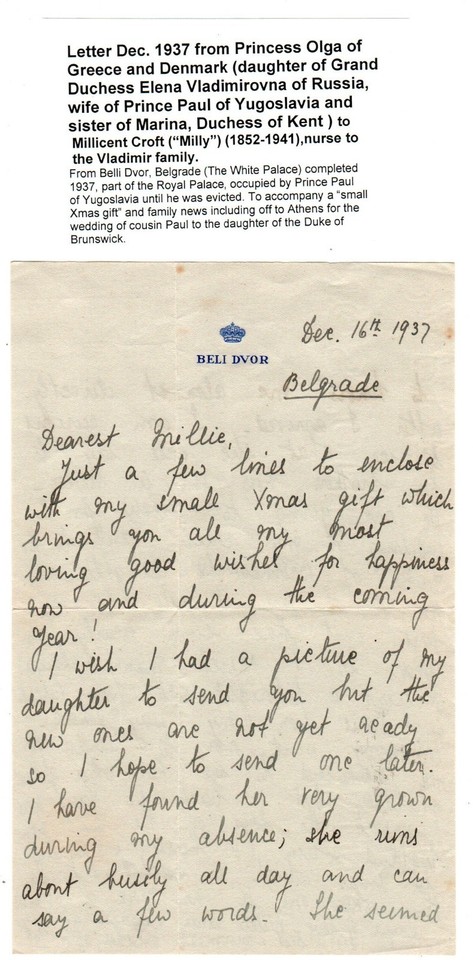 Letter Dec. 1937 from Princess Olga of
Greece and Denmark (daughter of Grand
Duchess Elena Vladimirovna of Russia,
wife of Prince Paul of Yugoslavia and
sister of Marina, Duchess of Kent ) to
Millicent Croft (“Milly”) (1852-1941),nurse to
the Vladimir family.
From Beli Dvor, Belgrade (The White Palace) completed
1937, part of the Royal Palace, occupied by Prince Paul
of Yugoslavia until he was evicted. To accompany a “small
Xmas gift” and family news including off to Athens for the
wedding of cousin Paul to the daughter of the Duke of
Brunswick.
Dec. 16th 1937
BELI DVOR
Belgrade
Dearest Millie,
Just a few lines to enclose
with my small Xmas gift which
brings you all my most
loving good wishes for happiness
now and during the coming
Year!
I wish I had a picture of my
daughter to send you but the
new ones are not yet ready
so I hope to send one later.
I have found her very grown
during my absence; she runs
about busily all day and can
say a few words. She seemed